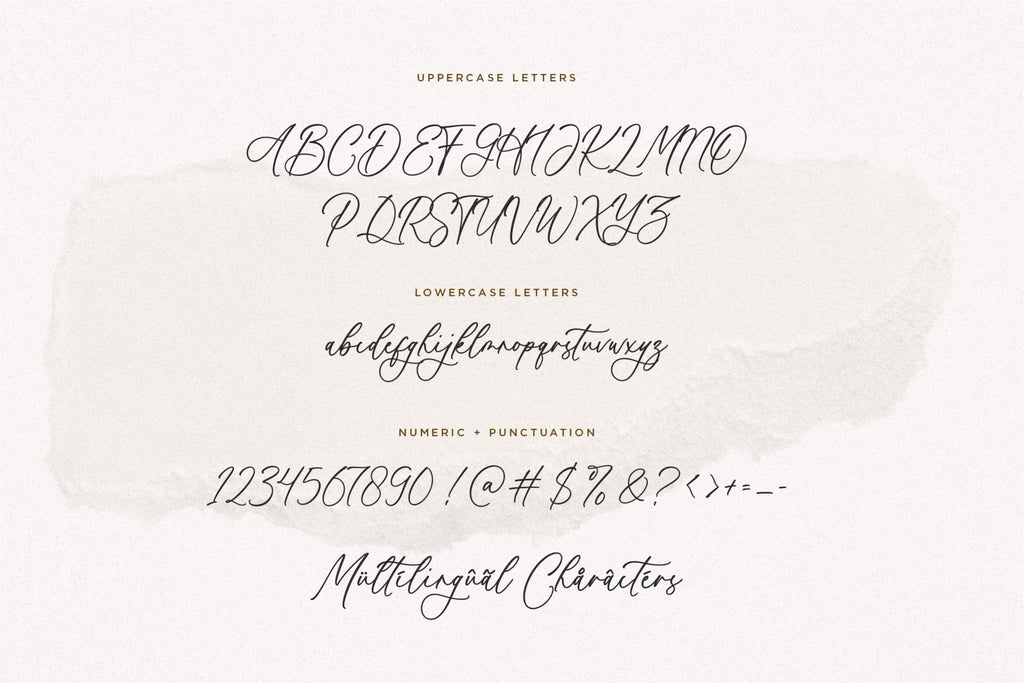 UPPERCASE LETTERS
ABCDEFGHIJKLMNO
PQRSTUVWXYZ
LOWERCASE LETTERS
abcdefghijklmnopqrstuvwxyz
NUMERIC + PUNCTUATION
1234567890 ! @ # $ % & ? < > + = _ -
Mültílingûãl Chåràctérs